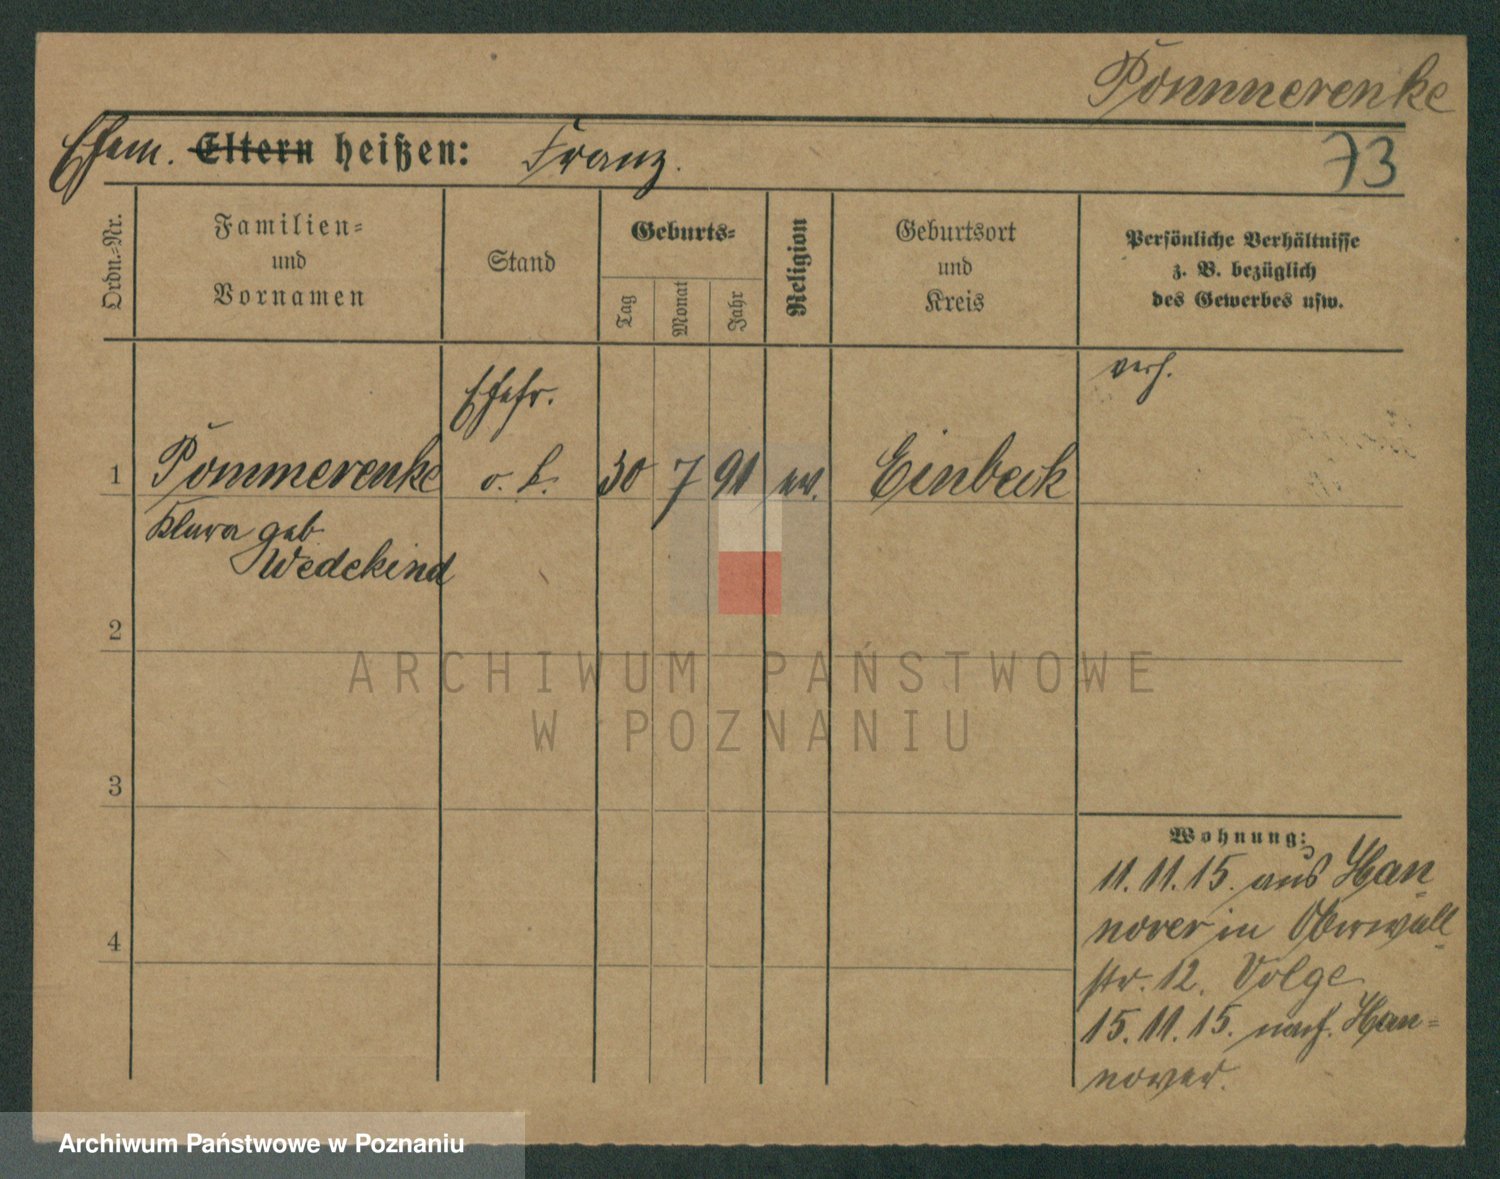 Pommerenke
Ehem. Eltern heißen: Franz.
73
Ordn.-Nr.
Familien-
und
Vornamen
Stand
Geburts-
Tag
Monat
Jahr
Religion
Geburtsort
und
Kreis
Persönliche Verhältnisse
z. B. bezüglich
des Gewerbes usw.
verh.
Ehefr.
1 Pommerenke o. b. 30 7 91 ev. Einbeck
Klara geb
Wedekind
2
ARCHIWUM PAŃSTWOWE
W POZNANIU
3
Wohnung:
11.11.15. aus Han-
nover in Oberwall
str. 12. Volge
4
15.11.15. nach Han-
nover.
Archiwum Państwowe w Poznaniu